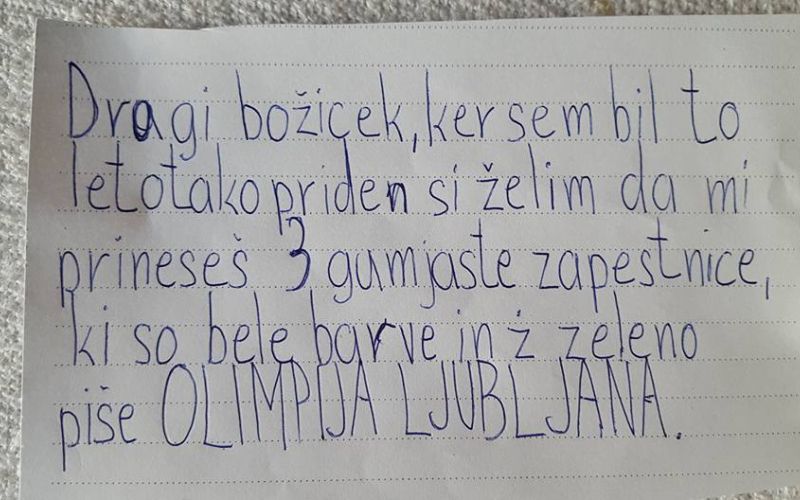 Dragi božicek, ker sem bil to
leto tako priden si želim da mi
prineseš 3 gumjaste zapestnice,
ki so bele barve in ż zeleno
piše OLIMPIJA LJUBLJANA.